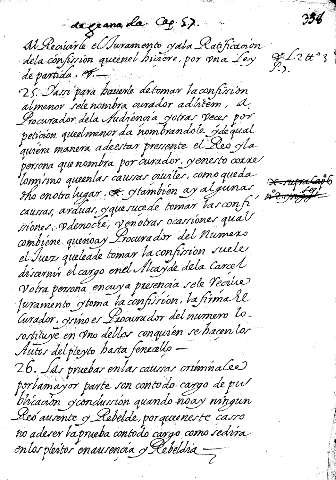 de grana da Cap. 57. 336
Al Recivirle el Juramento y a la Ratificacion
de la confission que en el hiziere, por vna Ley
de partida.
25. I assi para haverle de tomar la confission
al menor se le nombra curador ad litem, a
Procurador de la Audiencia y otras veces por
peticion que el menor da nombrandole y de qual
quiera manera a de estar presente el Reo y la
persona que nombra por curador, y en esto corre
lo mismo que en las causas civiles, como queda
dho en otro lugar. y tambien ay algunas
causas, arduas, y que sucede tomar las confi
siones, de noche, y en otras ocassiones qual
combiene que no ay Procurador del Numero
el Juez que a de tomar la confission suele
discernir el cargo en el Alcayde de la Carcel
V otra persona en cuya presencia se le Recive
Juramento y toma la confission, la firma el
Curador, y si no es Procurador del numero lo
sostituye en vno dellos con quien se hacen los
Autos del pleyto hasta fenecello
26. Las pruebas en las causas criminales
por la mayor parte son con todo cargo de pu
blicacion y conclussion quando no ay ningun
Reo ausente y Rebelde, por que en este casso
no a de ser la prueba con todo cargo como se dira
en los pleitos en ausencia y Rebeldia